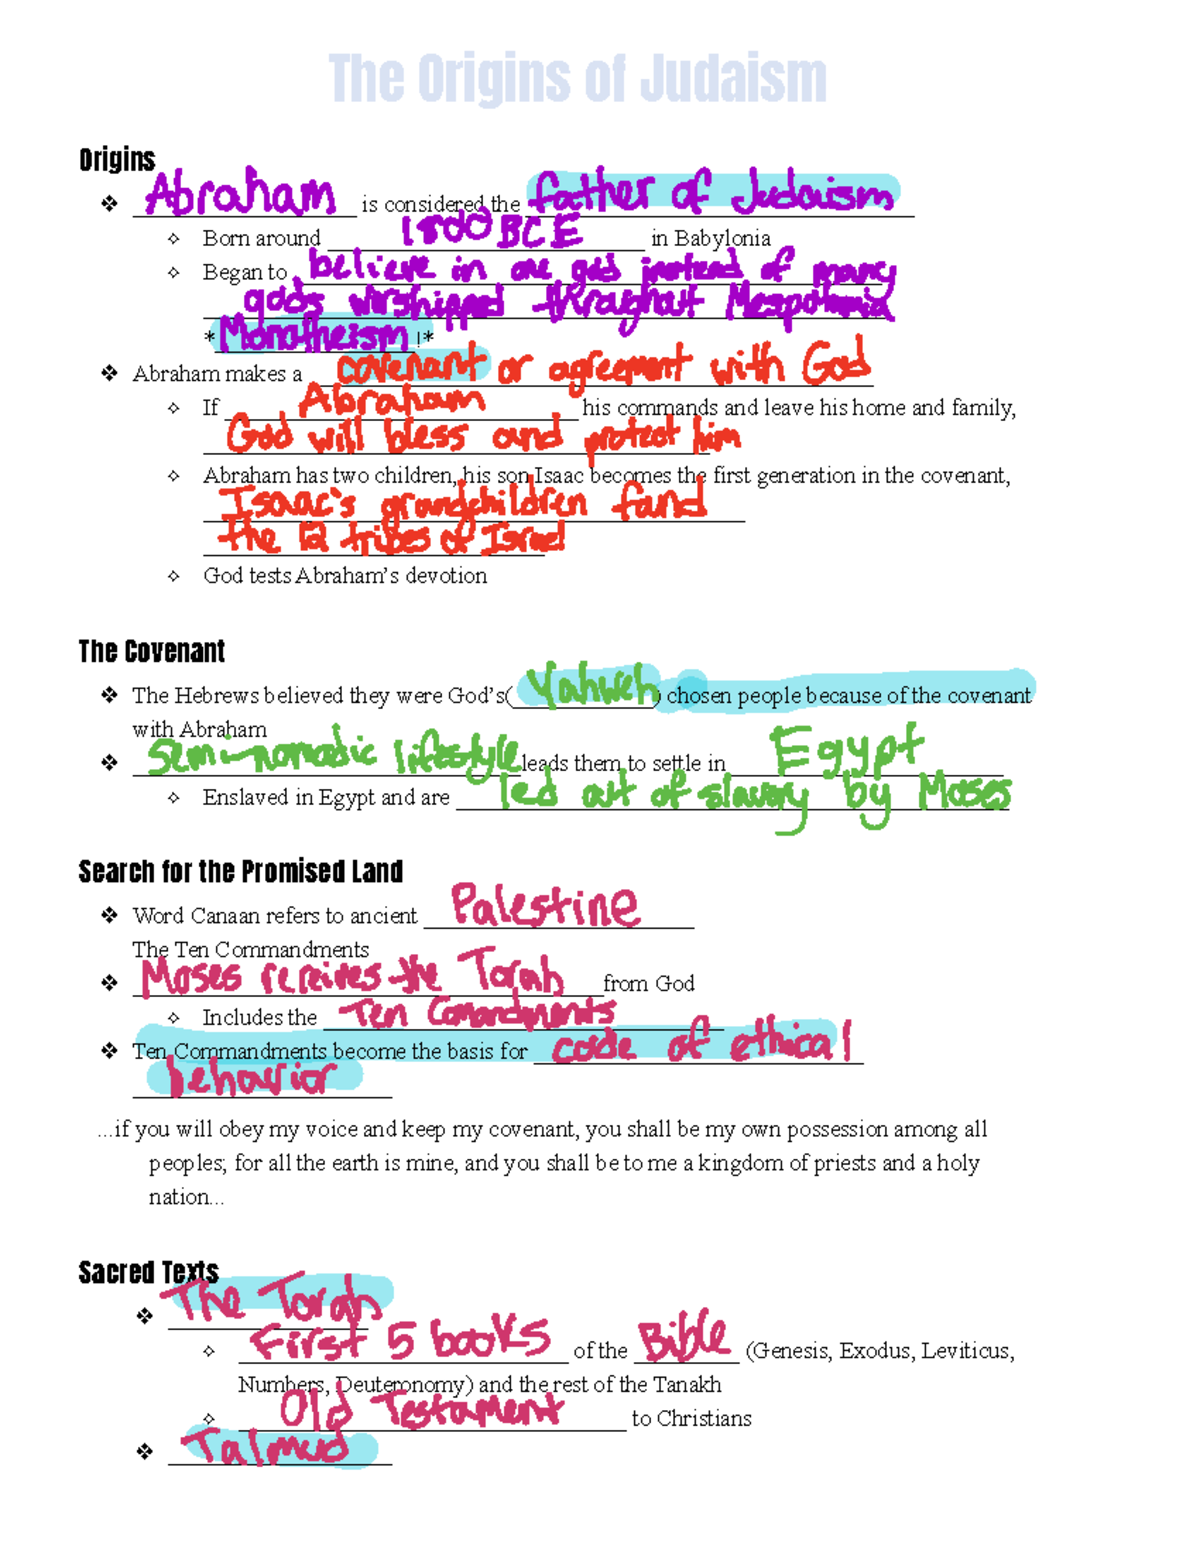 The Origins of Judaism
Origins
❖ Abraham is considered the father of Judaism
⬦ Born around 1800 BCE in Babylonia
⬦ Began to believe in one god instead of many
gods worshipped throughout Mesopotamia
*Monotheism!*
❖ Abraham makes a covenant or agreement with God
⬦ If Abraham his commands and leave his home and family,
God will bless and protect him
⬦ Abraham has two children, his son Isaac becomes the first generation in the covenant,
Isaac's grandchildren found
the 12 tribes of Israel
⬦ God tests Abraham's devotion
The Covenant
❖ The Hebrews believed they were God's(Yahweh) chosen people because of the covenant
with Abraham
❖ Semi-nomadic lifestyle leads them to settle in Egypt
⬦ Enslaved in Egypt and are led out of slavery by Moses
Search for the Promised Land
❖ Word Canaan refers to ancient Palestine
The Ten Commandments
❖ Moses receives the Torah from God
⬦ Includes the Ten Comandments
❖ Ten Commandments become the basis for code of ethical
behavior
...if you will obey my voice and keep my covenant, you shall be my own possession among all
peoples; for all the earth is mine, and you shall be to me a kingdom of priests and a holy
nation...
Sacred Texts
❖ The Torah
⬦ First 5 books of the Bible (Genesis, Exodus, Leviticus,
Numbers, Deuteronomy) and the rest of the Tanakh
⬦ Old Testament to Christians
❖ Talmud